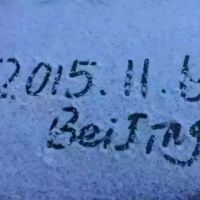 2015.11.
BeiJing